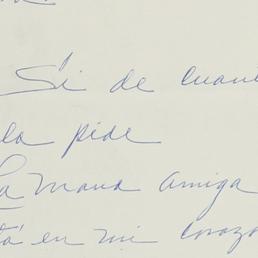 Si de cuan
la pide
La mana amiga
tá en mi coraz